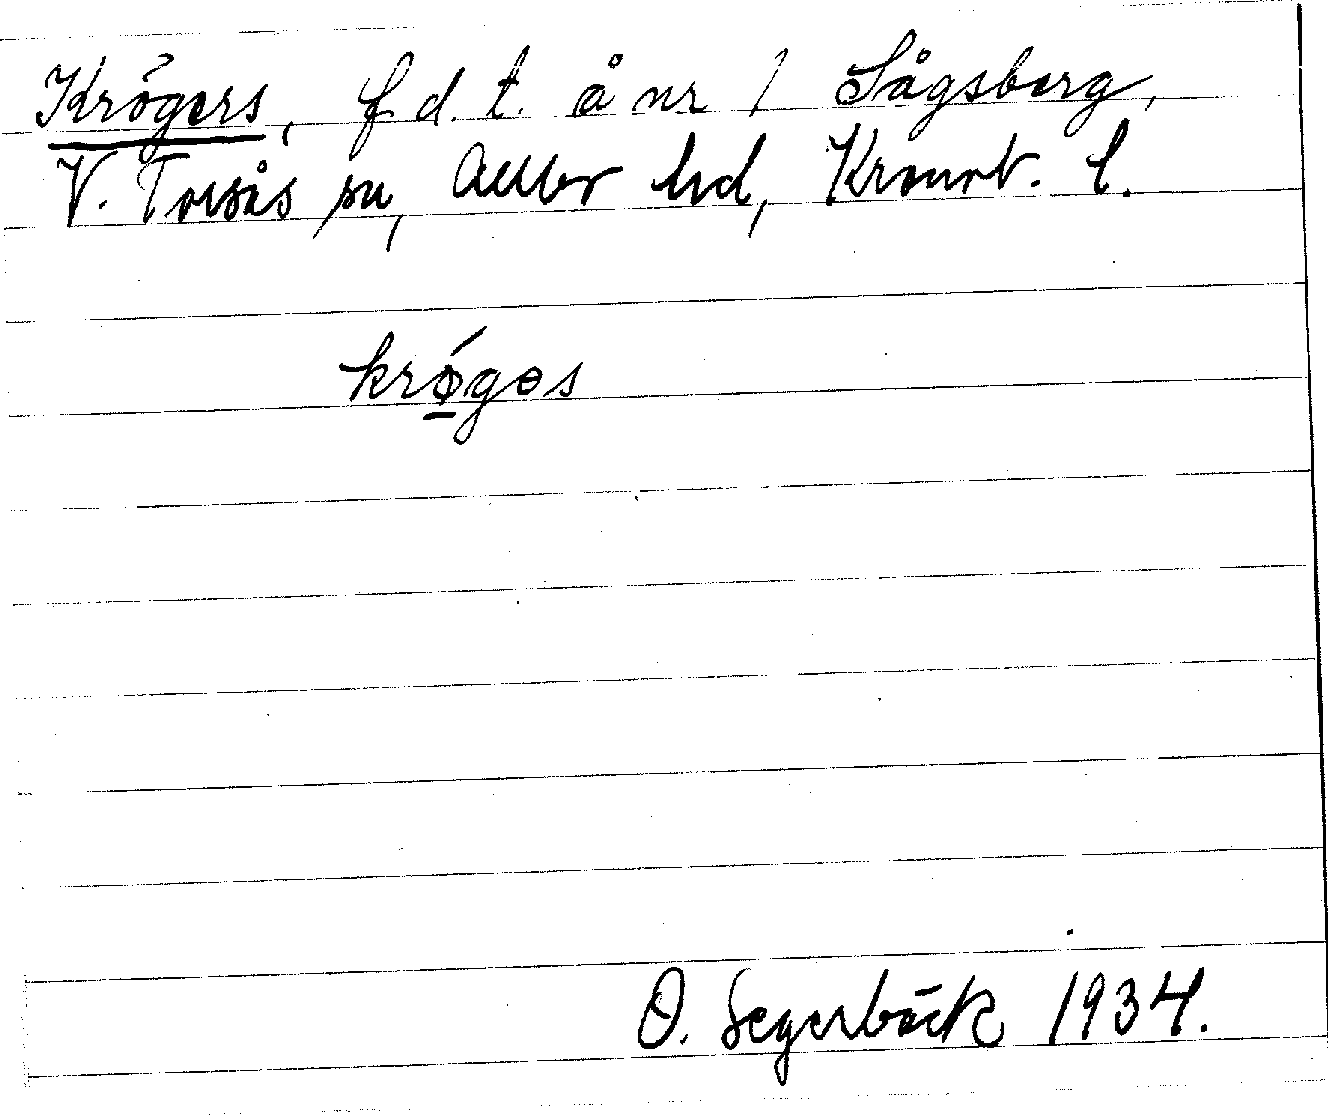 Krögers, f d. t. å nr 1 Sågsberg,
V. Torsås sn, Allbo hd, Kronob. l.
krǿ̲gəs
O. Segerbäck 1934.